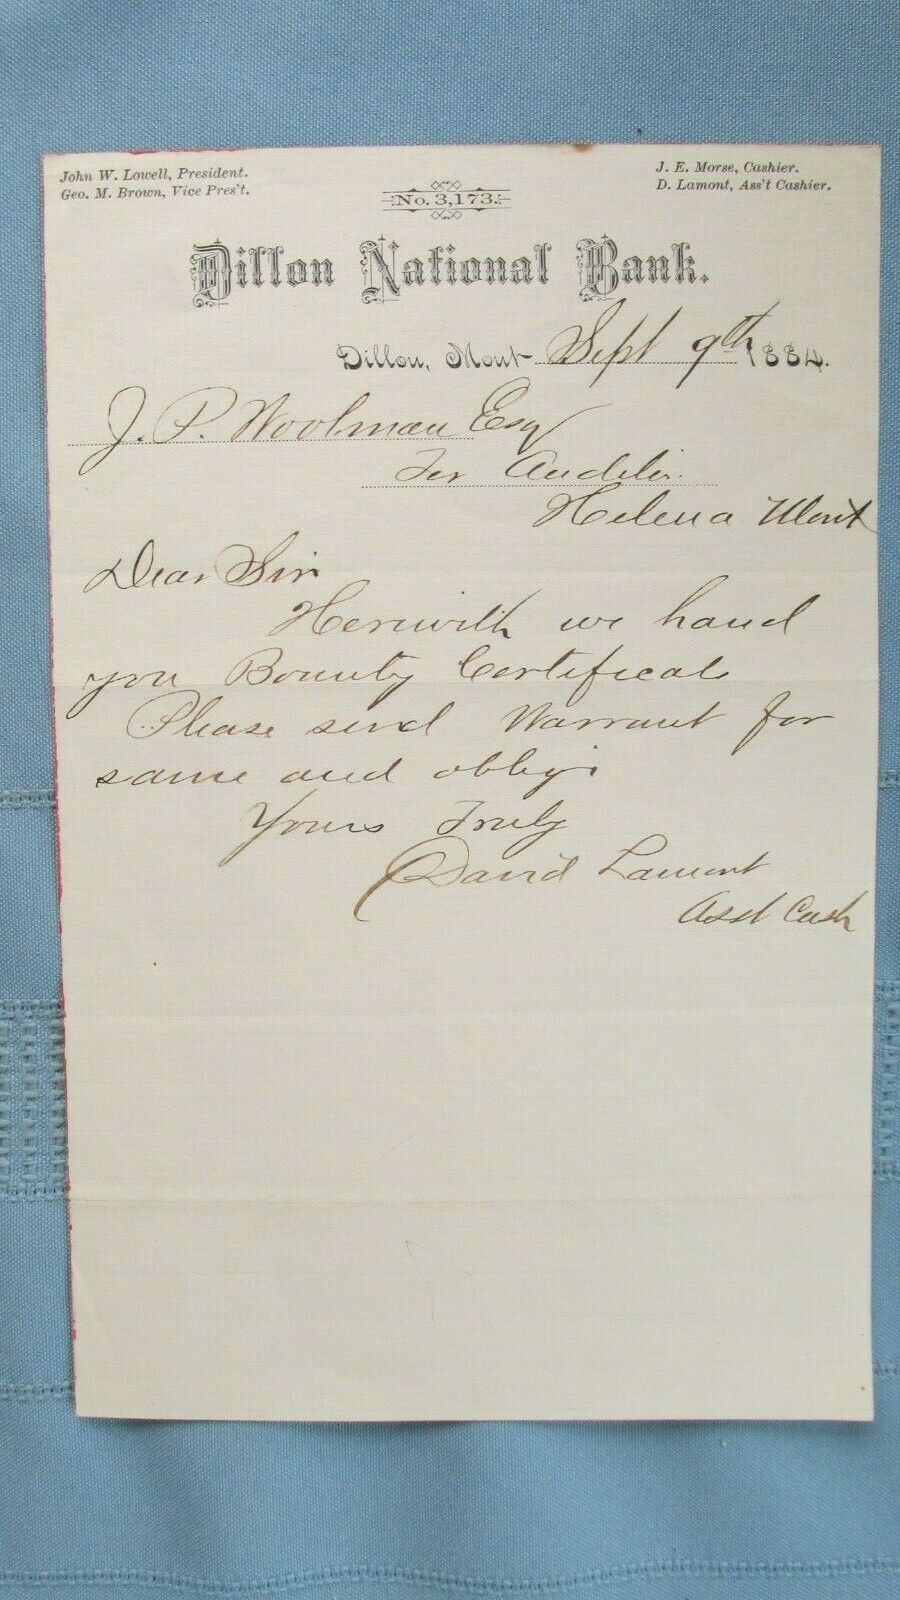 John W. Lowell, President.
Geo. M. Brown, Vice Pres't.
J. E. Morse, Cashier.
D. Lamont, Ass't Cashier.
No. 3,173.
Dillon National Bank.
Dillon, Mont Sept 9th 1884.
J. P. Woolman Esq
Ter Auditor
Helena Mont
Dear Sir
Herewith we hand
you Bounty Certificate
Please send Warrant for
same and oblige
Yours Truly
David Lamont
Asst Cash